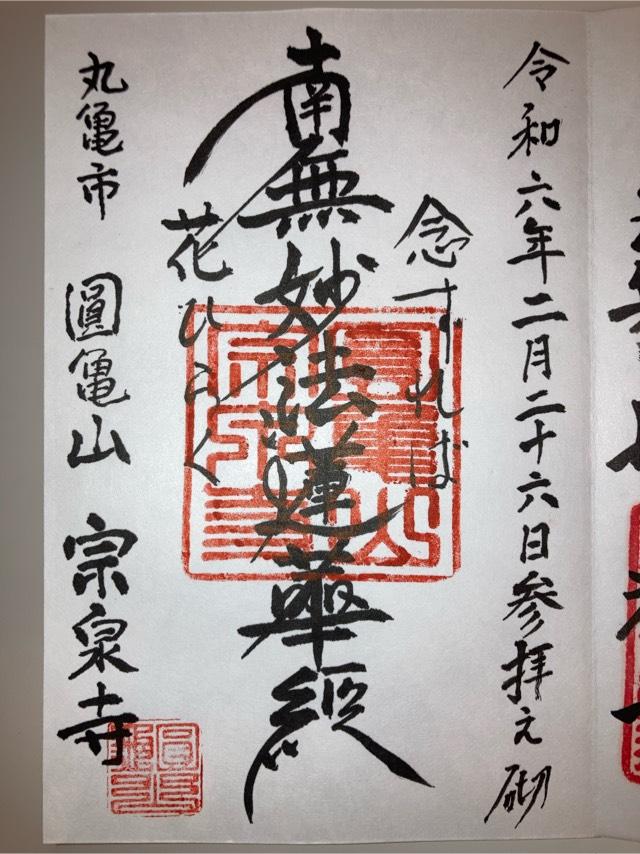 令和六年二月二十六日参拝之砌
念ずれば
南無妙法蓮華經
花ひらく
丸亀市 圓亀山 宗泉寺
圓亀山
宗泉寺